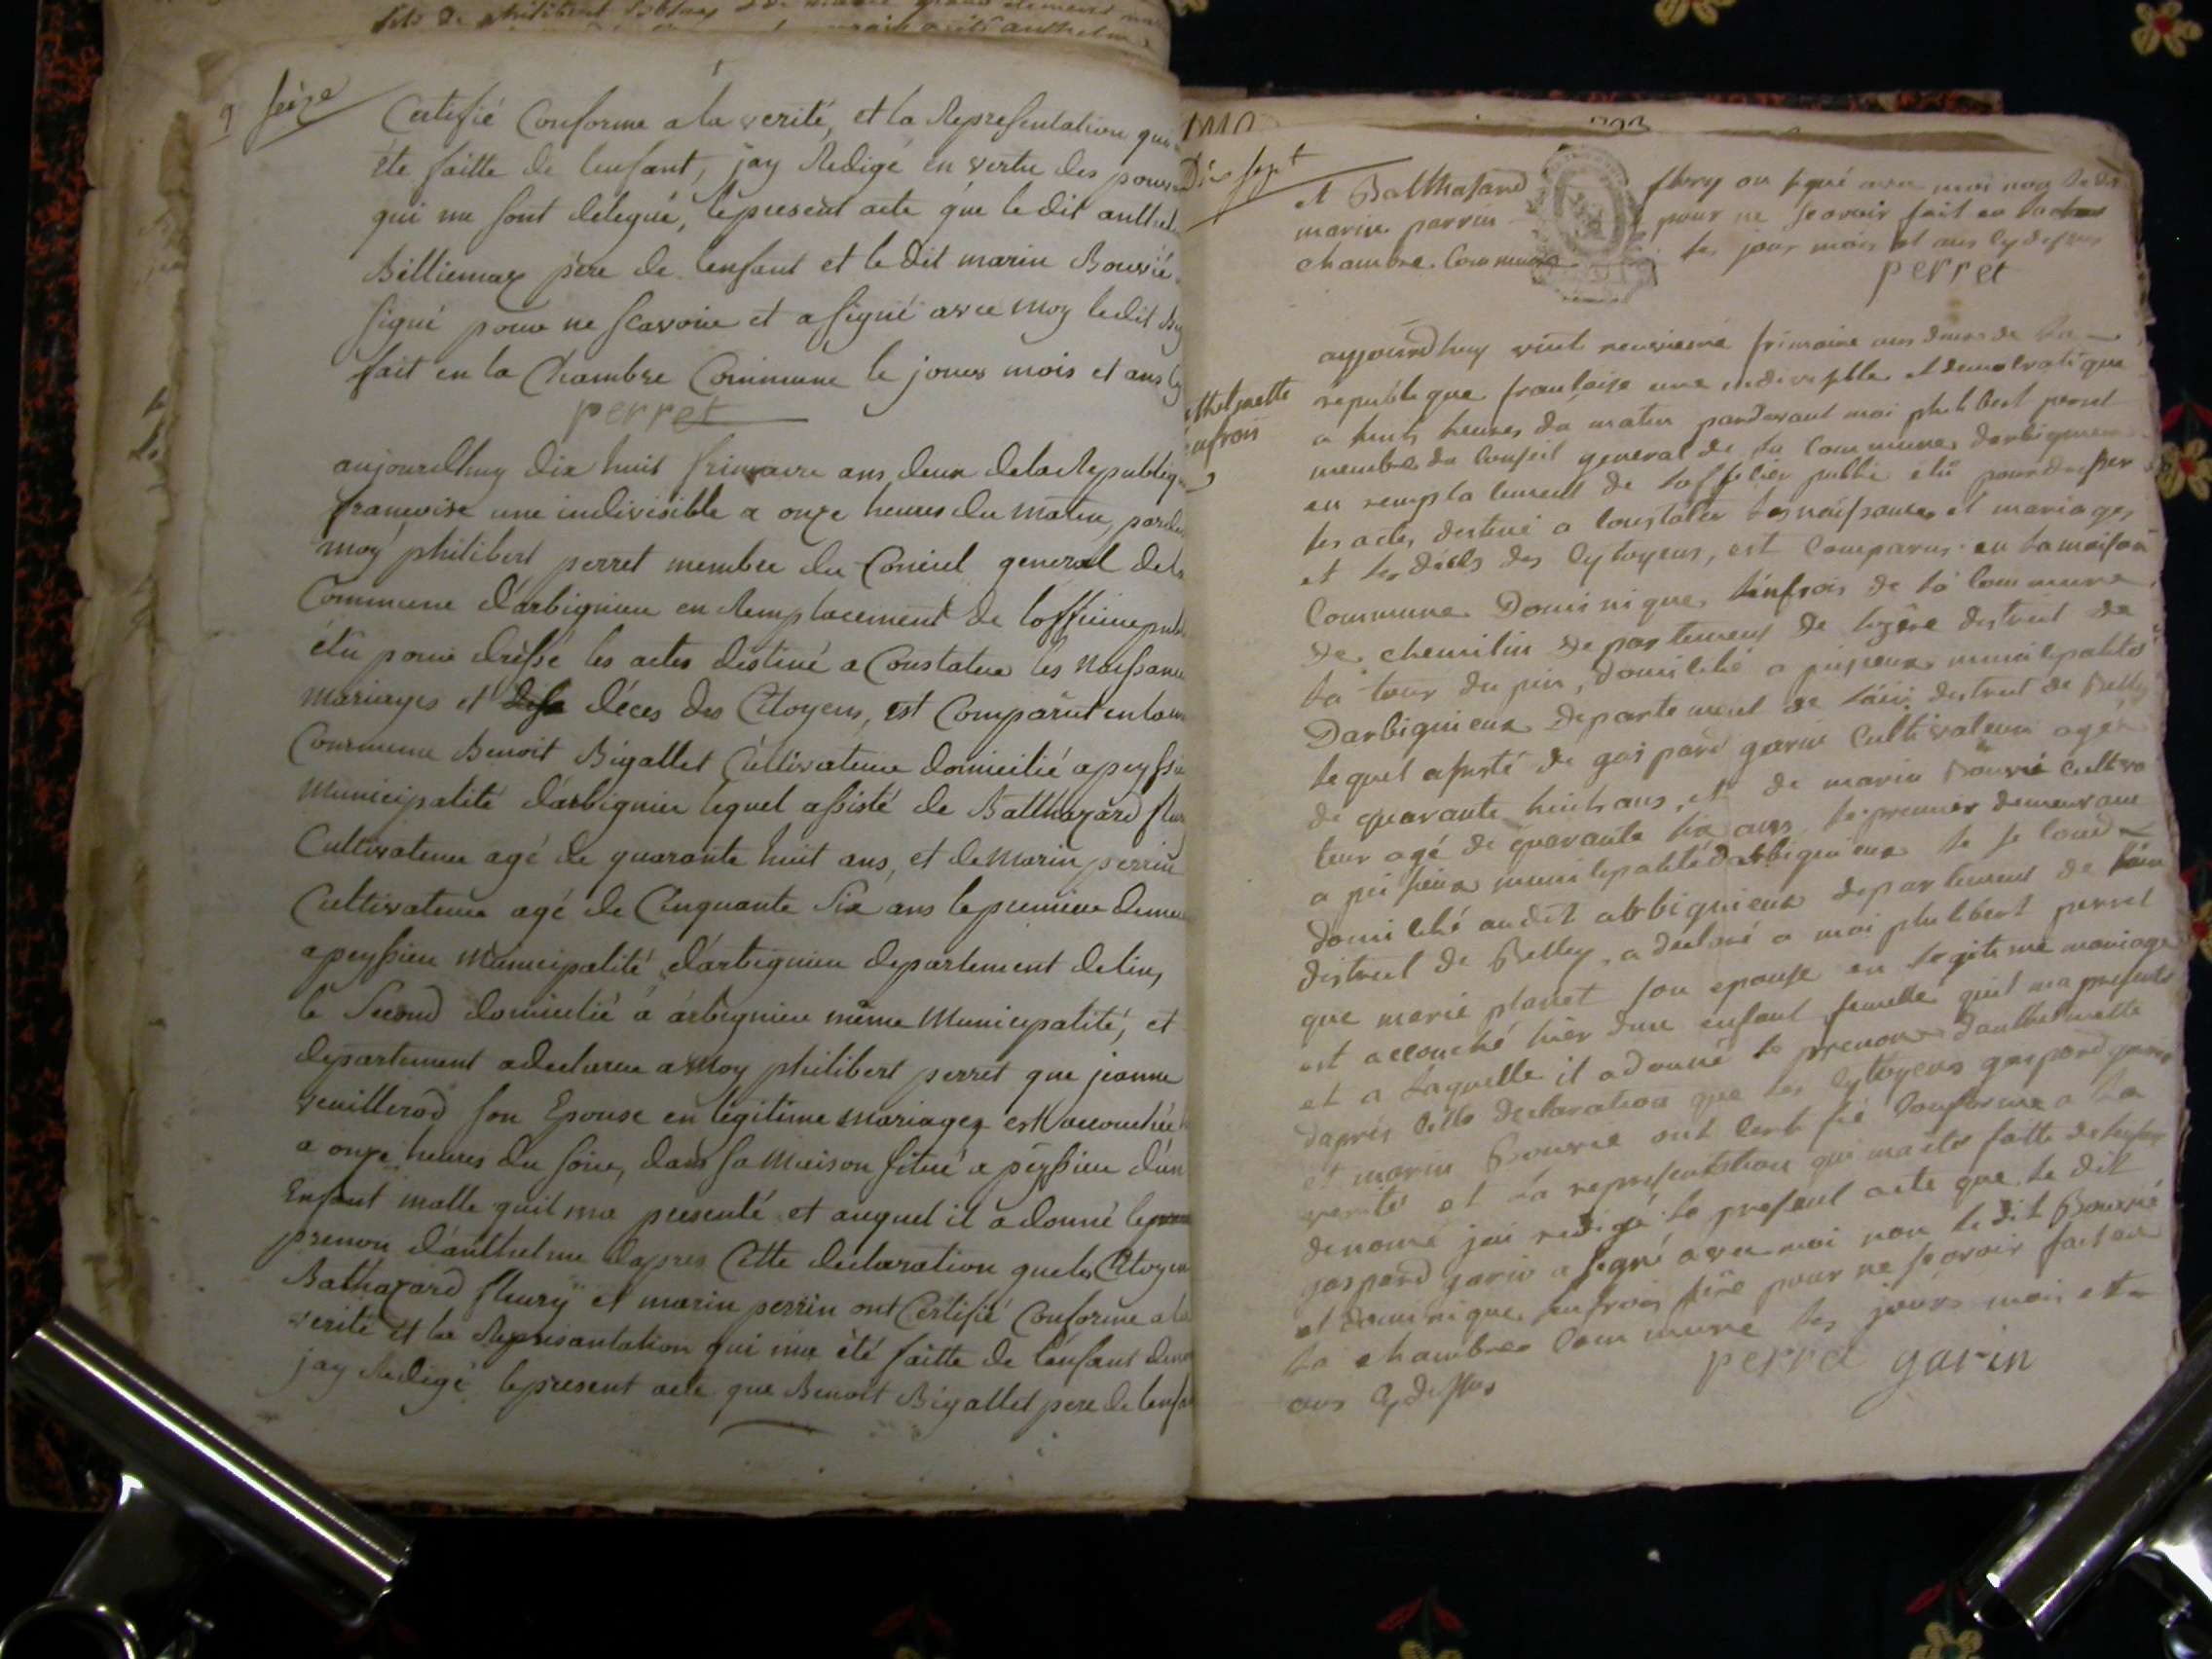 seize
Certifié Conforme a la verité, et la Representation qui
éte faitte de lenfant, jay Redigé en vertu des pouv
qui me sont délégué, le present acte que le dit anthel
Billiemaz père de lenfant et le dit marin Bouvié
signé pour ne scavoir et a signé avec moy le dit
fait en la Chambre Commune le jour mois et ans
perret
aujourdhuy dix huit frimaire ans deux de la Republiq
francoise une indivisible a onze heures du matin, parde
moy philibert perret membre du Conseil general de la
Commune d'arbignieu en Remplacement de lofficier publ
élu pour dréssé les actes destiné a Constater les Naissance
Mariages et déces des Citoyens, est Comparut en la
Commune Benoit Bigallet Cultivateur domicilié a peyssieu
Municipalité d'arbignieu lequel assisté de Balthazard fleu
Cultivateur agé de quarante huit ans, et de Marin perrin
Cultivateur agé de Cinquante Six ans le premier demeu
a peyssieu Municipalité d'arbignieu departement de lin,
le Second domicilié a arbignieu même Municipalité, et
departement a declarer a Moy philibert perret que jeanne
veuillerod son Epouse en légitime mariage est accouchée
a onze heures du soir, dans sa Maison situé a peyssieu d'un
Enfant malle quil ma presenté et auquel il a donné le
prenon d'anthelme dapres Cette declaration que les Citoyen
Balthazard fleury et marin perrin ont Certifié Conforme a la
verité et la Represantation qui ma été faitte de l'enfant deno
jay Redigé le present acte que Benoit Bigallet pere de lenfa
Dix sept
et Balthasard fleury on signé avec moi non le dit
marin perrin pour ne scavoir fait en la
chambre Commune les jour mois et ans cy dessus
perret
thelmette
enfrois
aujourdhuy vint neuvieme frimaire ans deux de la
republique francaise une indivisible et democratique
a huit heures du matin pardevant moi philibert perret
membre du Conseil general de la Commune darbignieu
en remplacement de lofficier public élu pour dresser
les actes destiné a Constater les naissances et mariages
et les décès des Cytoyens, est Comparus en la maison
Commune Dominique tenfrois de la Commune
de chemilin departement de lizere district de
la tour du pin, domicilié a peisieux municipalité
Darbignieux departement de lain district de Belley
lequel assisté de gaspard garin Cultivateur agé
de quarante huit ans, et de marin Bouvié cultiva
teur agé de quarante six ans le premier demeurant
a peisieux municipalité darbignieux le second
domicilié audit arbignieux departement de lain
district de Belley, a declaré a moi philibert perret
que marie planet son epouse en legitime mariage
est accouché hier dune enfant femelle quil ma presenté
et a laquelle il a donné le prenon danthelmette
daprès cette declaration que les Cytoyens gaspard garin
et marin Bouvié ont certifié Conforme a la
verité et la representation qui ma été faitte de lenfant
denomé jai redigé le present acte que le dit
gaspard garin a signé avec moi non le dit Bouvié
et dominique tenfrois père pour ne scavoir fait en
la chambre Commune les jours mois et
ans cy dessus
perret garin